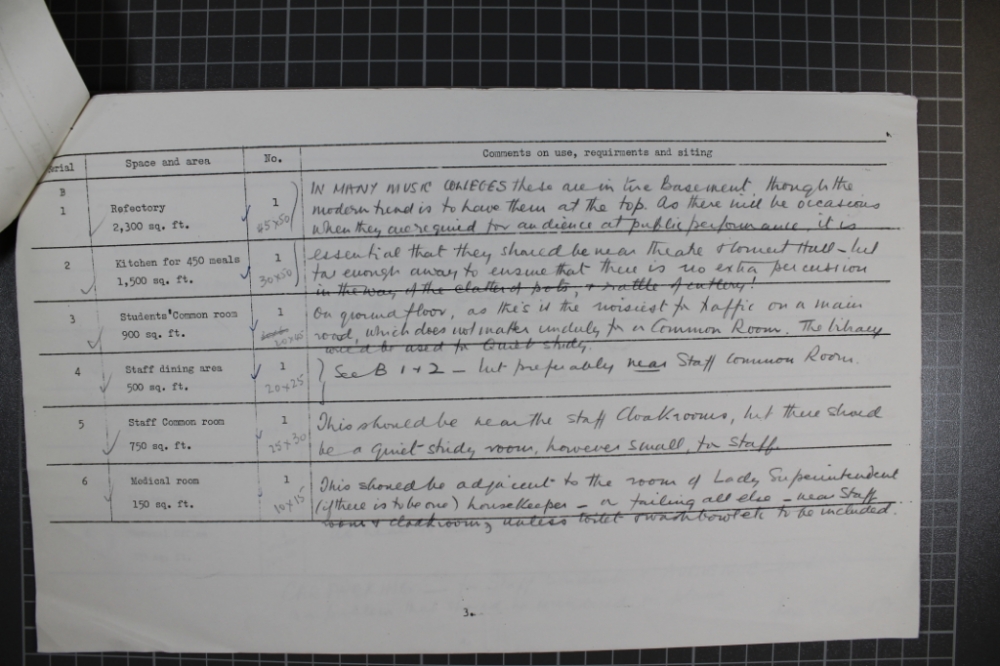 Serial Space and area No. Comments on use, requirments and siting
B
1 Refectory 1 IN MANY MUSIC COLLEGES these are in the Basement, though the
2,300 sq. ft. 65×50 modern trend is to have them at the top. As there will be occasions
when they are required for audience at public performance, it is
2 Kitchen for 450 meals 1 essential that they should be near Theatre & Concert Hall – but
1,500 sq. ft. 30×50 far enough away to ensure that there is no extra percussion
in the way of the clatter of pots, & rattle of cutlery!
3 Students' Common room 1 On ground floor, as this is the noisiest for traffic on a main
900 sq. ft. road, which does not matter unduly for a Common Room. The library
would be used for Quiet study.
4 Staff dining area 1 See B 1 + 2 – but preferably near Staff Common Room.
500 sq. ft. 20×25
5 Staff Common room 1 This should be near the staff Cloakrooms, but there should
750 sq. ft. 25×30 be a quiet study room, however small, for staff.
6 Medical room 1 This should be adjacent to the room of Lady Superintendent
150 sq. ft. 10×15 (if there is to be one) housekeeper – or failing all else – near Staff
room & cloakrooms unless toilet & washbowl etc to be included.
3.